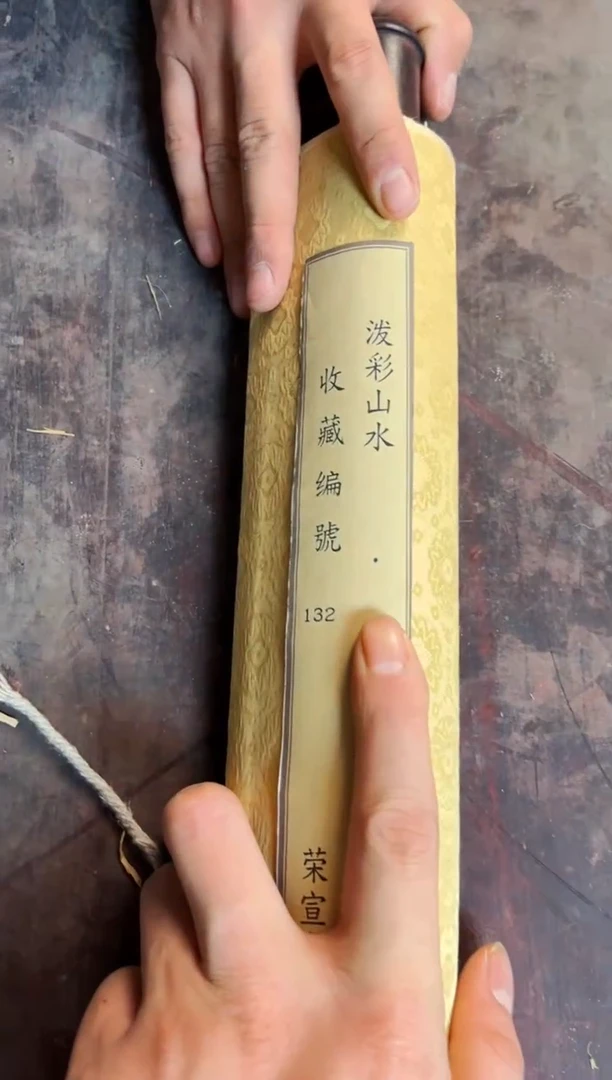 泼彩山水·
收藏编號
132
荣宣